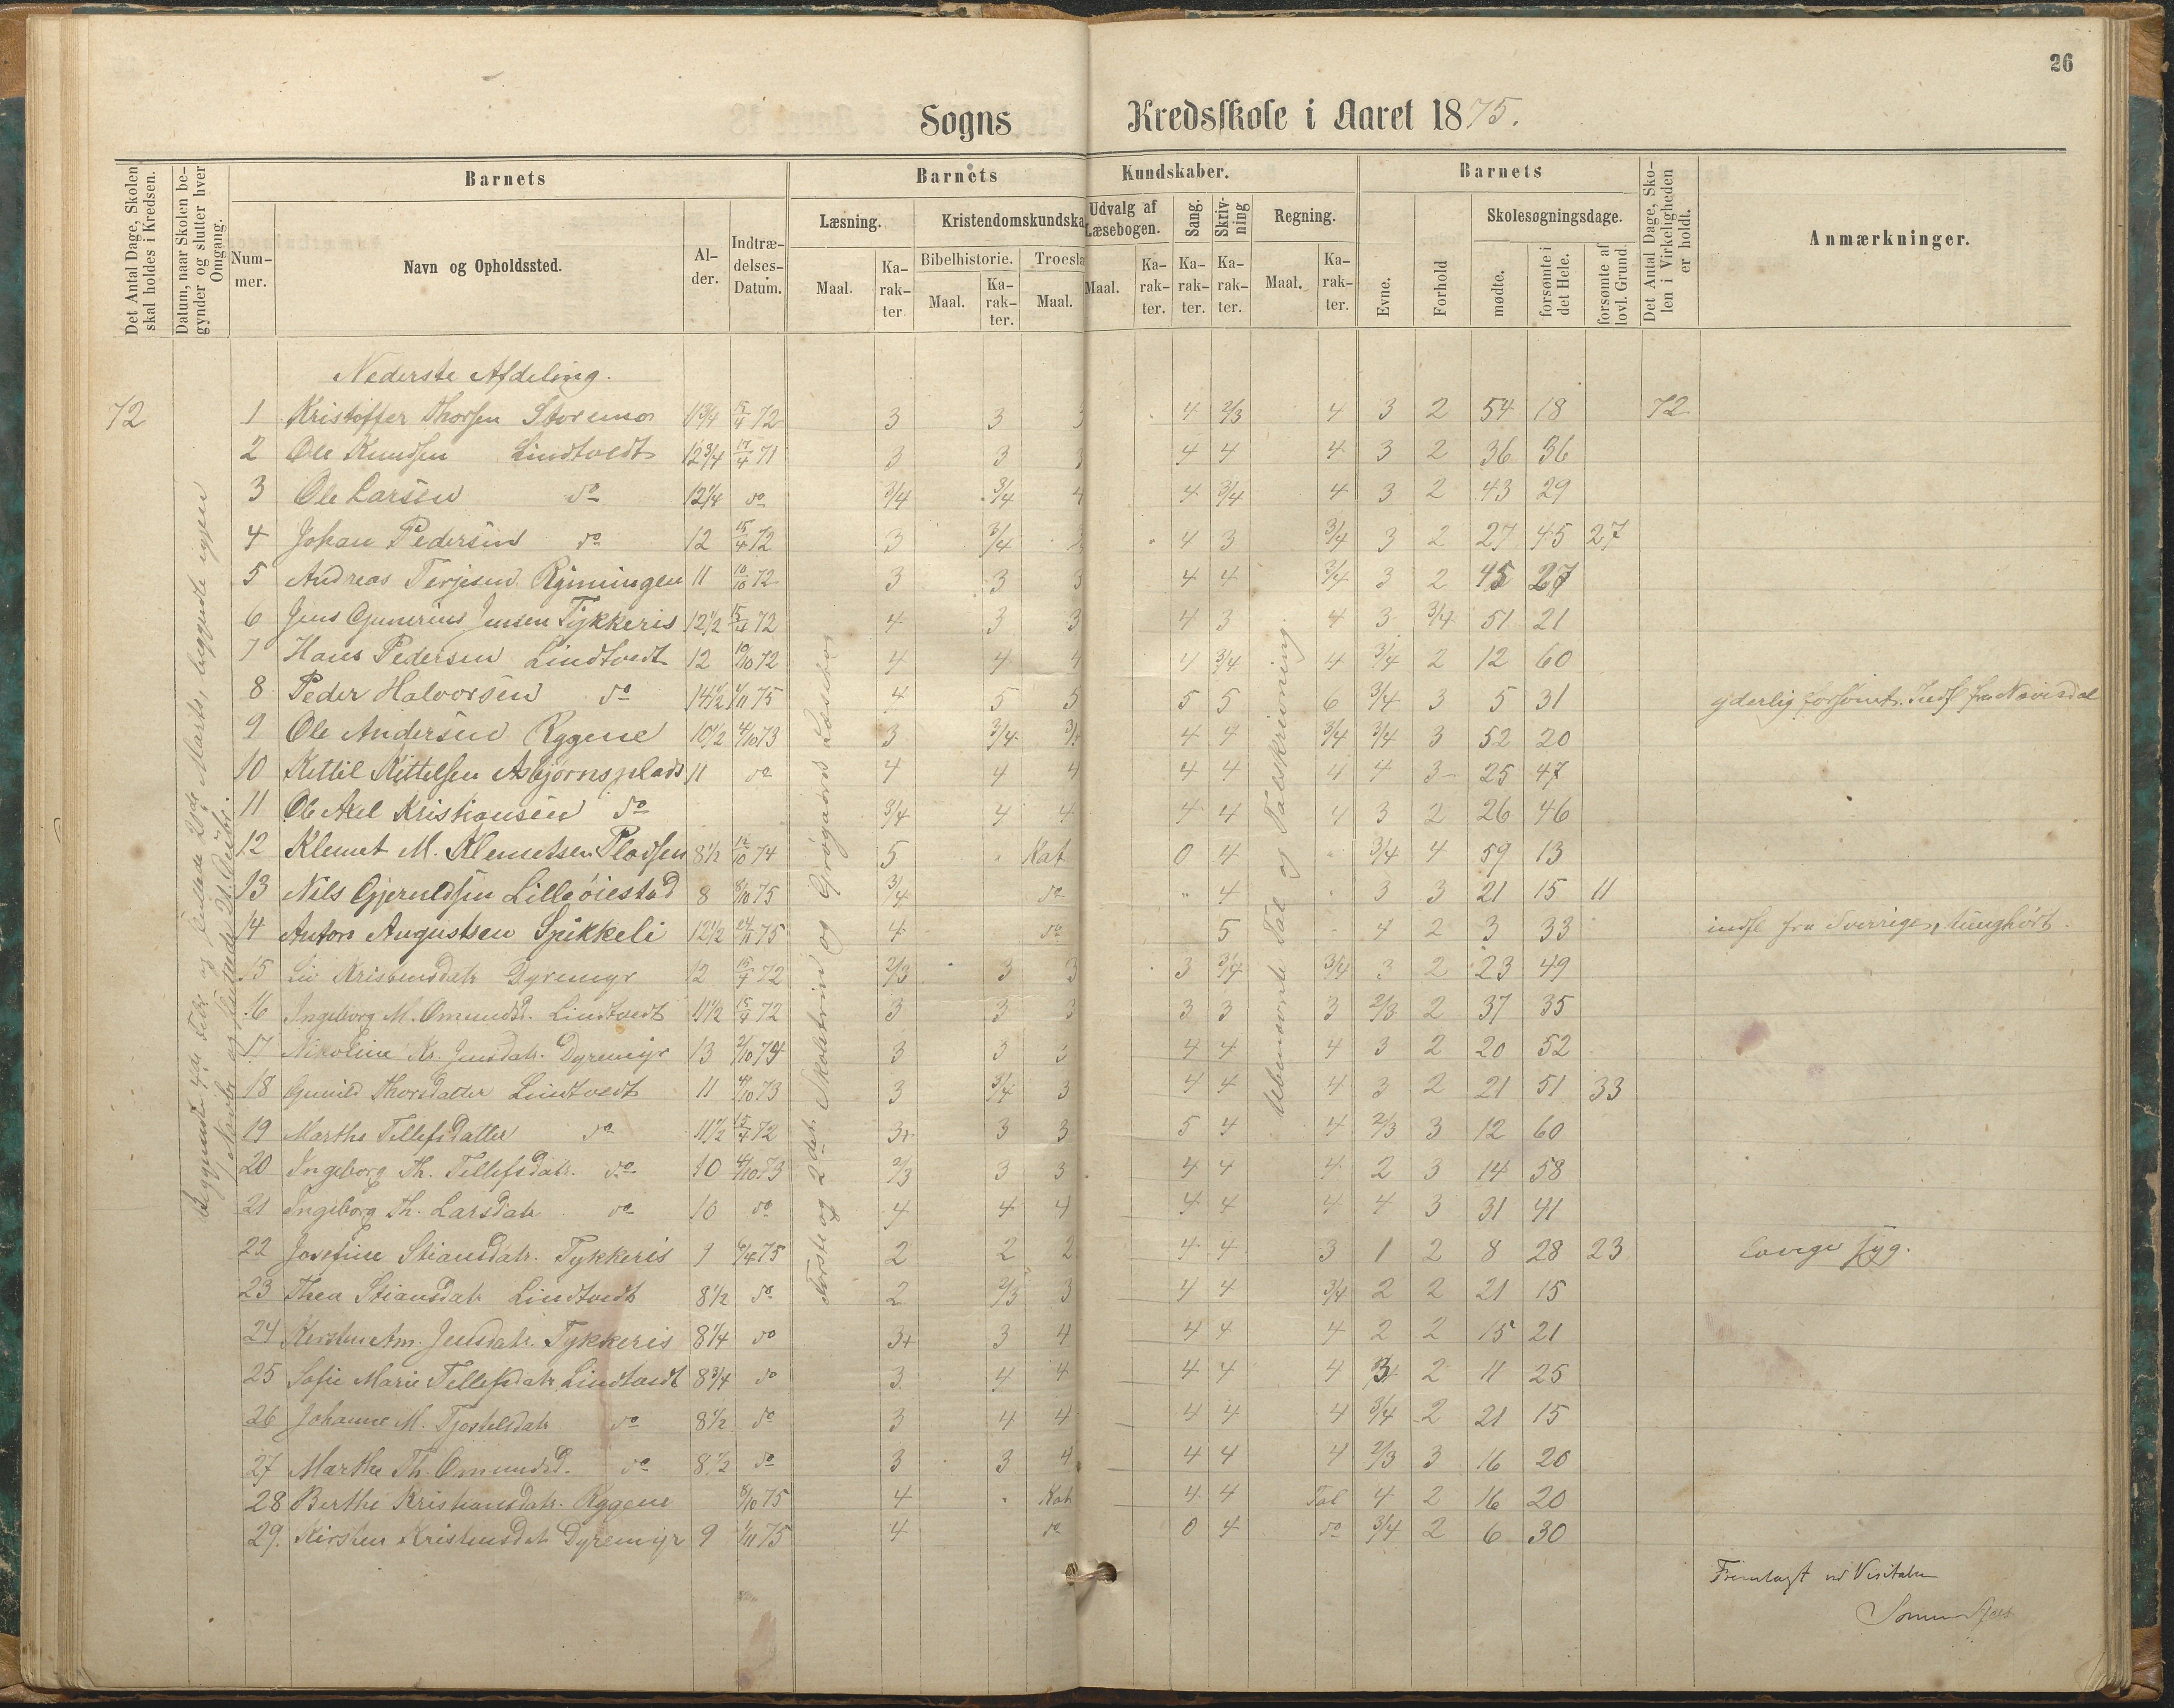 26
Sogns Kredsskole i Aaret 1875.
Det Antal Dage, Skolen skal holdes i Kredsen.
Datum, naar Skolen begynder og slutter hver Omgang.
Barnets
Nummer.
Navn og Opholdssted.
Alder.
Indtrædelses-Datum.
Barnets Kundskaber.
Læsning.
Maal.
Karakter.
Kristendomskundska
Bibelhistorie.
Maal.
Karakter.
Troesla
Maal.
Udvalg af Læsebogen.
Maal.
Karakter.
Sang.
Karakter.
Skrivning
Karakter.
Regning.
Maal.
Karakter.
Barnets
Evne.
Forhold
Skolesøgningsdage.
mødte.
forsømte i det Hele.
forsømte af lovl. Grund.
Det Antal Dage, Skolen i Virkeligheden er holdt.
Anmærkninger.
Nederste Afdeling.
72 1 Kristoffer Thorsen Storemo 11 3/4 15/4 72 3 3 3 4 2/3 4 3 2 54 18 72
2 Ole Knudsen Lindtvedt 12 3/4 17/4 71 3 3 3 4 4 4 3 2 36 36
3 Ole Larsen do 12 1/4 do 3/4 3/4 4 4 3/4 4 3 2 43 29
4 Johan Pedersen do 12 15/4 72 3 3/4 3 4 3 3/4 3 2 27 45 27
5 Andreas Terjesen Rymingen 11 10/10 72 3 3 3 4 4 3/4 3 2 45 27
6 Jens Gunerius Jensen Tykkeris 12 1/2 15/4 72 4 3 3 4 3 4 3 3/4 51 21
7 Hans Pedersen Lindtvedt 12 10/10 72 4 4 4 4 3/4 4 3/4 2 12 60
8 Peder Halvorsen do 14 1/2 1/11 75 4 5 5 5 5 6 3/4 3 5 31 yderlig forsømt. Indfl fra
9 Ole Andersen Rygene 10 1/2 4/10 73 3 3/4 3/4 4 4 3/4 3/4 3 52 20
10 Kettil Kittelsen Asbjørnsplads 11 do 4 4 4 4 4 4 4 3 25 47
11 Ole Axel Kristiansen do 3/4 4 4 4 4 4 3 2 26 46
12 Klemet M. Klemetsen Pladsen 8 1/2 12/10 74 5 " Kat 0 4 " 3/4 4 59 13
13 Nils Gjeruldsen Lilleøiestad 8 8/10 75 3/4 do " 4 " 3 3 21 15 11
14 Anton Augustsen Spikkeli 12 1/2 24/11 75 4 do 5 4 2 3 33 indfl fra Sverrige, tunghørt.
15 Kristensdatr Dyremyr 12 15/4 72 2/3 3 3 3 3/4 3/4 3 2 23 49
16 Ingeborg M. Omundsd. Lindtvedt 11 1/2 15/4 72 3 3 3 3 3 3 2/3 2 37 35
17 Nikoline Kr. Jensdatr. Dyremyr 13 2/10 74 3 3 3 4 4 4 3 2 20 52
18 Gunild Thorsdatter Lindtvedt 11 4/10 73 3 3/4 3 4 4 4 3 2 21 51 33
19 Marthe Tellefsdatter do 11 1/2 15/4 72 3+ 3 3 5 4 4 2/3 3 12 60
20 Ingeborg Th. Tellefsdatr. do 10 4/10 73 2/3 3 3 4 4 4 2 3 14 58
21 Ingeborg Th. Larsdatr do 10 do 4 4 4 4 4 4 4 3 31 41
22 Josefine Stiansdatr. Tykkeris 9 6/4 75 2 2 2 4 4 3 1 2 8 28 23 længe syg.
23 Thea Stiansdatr Lindtvedt 8 1/2 do 2 2/3 3 4 4 3/4 2 2 21 15
24 Am. Jensdatr. Tykkeris 8 1/4 do 3+ 3 4 4 4 4 2 2 15 21
25 Sofie Marie Tellefsdatr Lindtvedt 8 3/4 do 3 4 4 4 4 4 3 2 11 25
26 Johanne M. Tjostelsdatr do 8 1/2 do 3 4 4 4 4 4 3/4 2 21 15
27 Marthe Th. Omundsd. do 8 1/2 do 3 3 4 4 4 4 2/3 3 16 20
28 Berthe Kristiansdatr. Rygene 8/10 75 4 " Kat 4 4 Tal 4 2 16 20
29. Kirsten Kristensdatr Dyremyr 9 1/11 75 4 do 0 4 do 3/4 2 6 30
Første og 2det Skoletrin og
Ubenævnte Tal og Talskrivning
Fremlagt ved Visitatsen